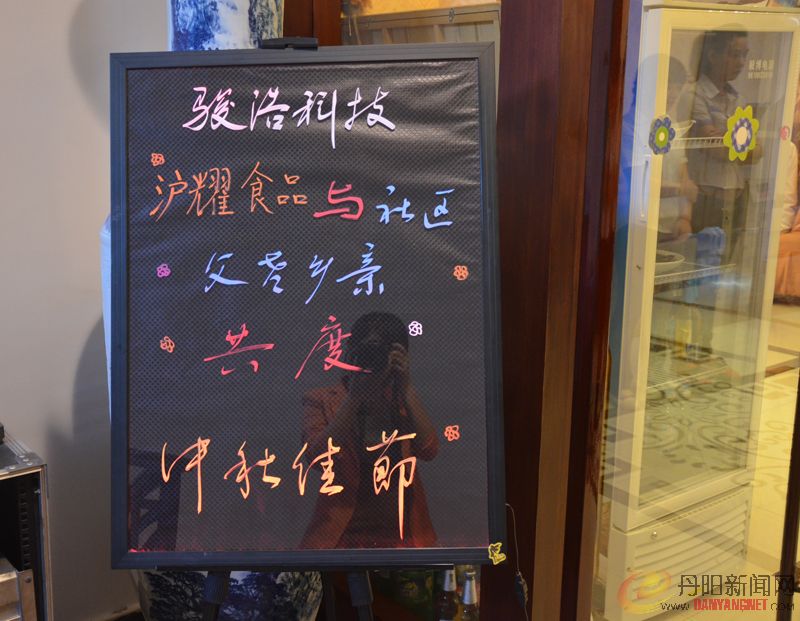 骏浩科技
沪耀食品与社区
父老乡亲
共度
中秋佳節
丹阳新闻网
www.DANYANG.NET